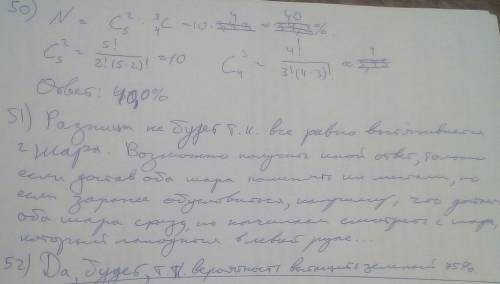 50) N = C₅² · ³₄C = 10 · 4 = 40 %
C₅² = 5! / 2!(5-2)! = 10 C₄³ = 4! / 3!(4-3)! =
Ответ: 40,0%
51) Разницы не будет т.к. все равно вытягивается
2 шара. Возможно получить иной ответ, только
если достав оба шара поменять их местами, но
если заранее обусловиться, например, что достают
оба шара сразу, но начинаем смотреть с шара,
который находится в левой руке...
52) Да, будет, т.к. вероятность вытащить зеленый 75%